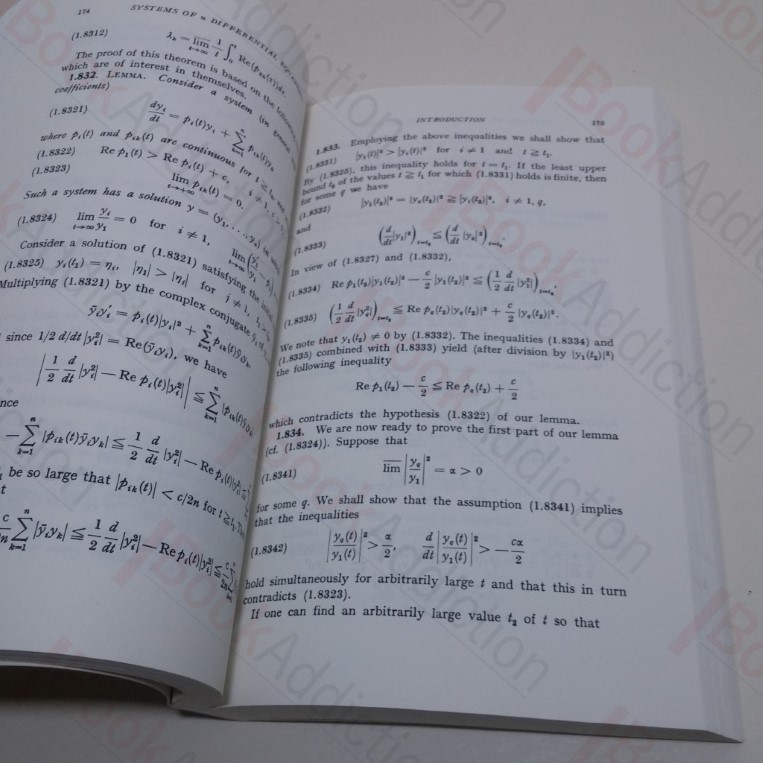 174 SYSTEMS OF n DIFFERENTIAL
(1.8312) λ_k = \overline{lim}_{t→∞} 1/t ∫_0^t Re(p_{kk}(t))dt
The proof of this theorem is based on the following
which are of interest in themselves.
1.832. LEMMA. Consider a system (in general
coefficients)
(1.8321) dy_i/dt = p_i(t)y_i + Σ_{k=1}^n p_{ik}(t)y_k
where p_i(t) and p_{ik}(t) are continuous for t ≧
(1.8322) Re p_1(t) > Re p_i(t) + c, i ≠ 1, c >
(1.8323) lim_{t→+∞} p_{ik}(t) = 0.
Such a system has a solution y = (y_1, ..., y_n)
(1.8324) lim_{t→∞} y_i/y_1 = 0 for i ≠ 1, lim
Consider a solution of (1.8321) satisfying the
(1.8325) y_i(t_1) = η_i, |η_1| > |η_i| for i ≠ 1,
Multiplying (1.8321) by the complex conjugate
ȳ_i y_i' = p_i(t)|y_i|² + Σ_{k=1}^n p_{ik}(t)ȳ_i y_k
since 1/2 d/dt |y_i²| = Re(ȳ_i y_i'), we have
|1/2 d/dt |y_i²| − Re p_i(t)|y_i²|| ≦ Σ_{k=1}^n |p_{ik}(t)ȳ_i y_k|
nce
−Σ_{k=1}^n |p_{ik}(t)ȳ_i y_k| ≦ 1/2 d/dt |y_i²| − Re p_i(t)|y_i²| ≦
be so large that |p_{ik}(t)| < c/2n for t ≧ t_1.
t
Σ_{k=1}^n |ȳ_i y_k| ≦ 1/2 d/dt |y_i²| − Re p_i(t)|y_i²| ≦
INTRODUCTION 175
1.833. Employing the above inequalities we shall show that
(1.8331) |y_1(t)|² > |y_i(t)|² for i ≠ 1 and t ≧ t_1.
By (1.8325), this inequality holds for t = t_1. If the least upper
bound t_2 of the values t ≧ t_1 for which (1.8331) holds is finite, then
for some q we have
(1.8332) |y_1(t_2)|² = |y_q(t_2)|² ≧ |y_i(t_2)|², i ≠ 1, q,
and
(1.8333) (d/dt |y_1|²)_{t=t_2} ≦ (d/dt |y_q|²)_{t=t_2}.
In view of (1.8327) and (1.8332),
(1.8334) Re p_1(t_2)|y_1(t_2)|² − c/2 |y_1(t_2)|² ≦ (1/2 d/dt |y_1²|)_{t=t_2},
(1.8335) (1/2 d/dt |y_q²|)_{t=t_2} ≦ Re p_q(t_2)|y_q(t_2)|² + c/2 |y_q(t_2)|².
We note that y_1(t_2) ≠ 0 by (1.8332). The inequalities (1.8334) and
(1.8335) combined with (1.8333) yield (after division by |y_1(t_2)|²)
the following inequality
Re p_1(t_2) − c/2 ≦ Re p_q(t_2) + c/2
which contradicts the hypothesis (1.8322) of our lemma.
1.834. We are now ready to prove the first part of our lemma
(cf. (1.8324)). Suppose that
(1.8341) \overline{lim} |y_q/y_1|² = α > 0
for some q. We shall show that the assumption (1.8341) implies
that the inequalities
(1.8342) |y_q(t)/y_1(t)|² > α/2, d/dt |y_q(t)/y_1(t)|² > − cα/2
hold simultaneously for arbitrarily large t and that this in turn
contradicts (1.8323).
If one can find an arbitrarily large value t_2 of t so that
BookAddiction